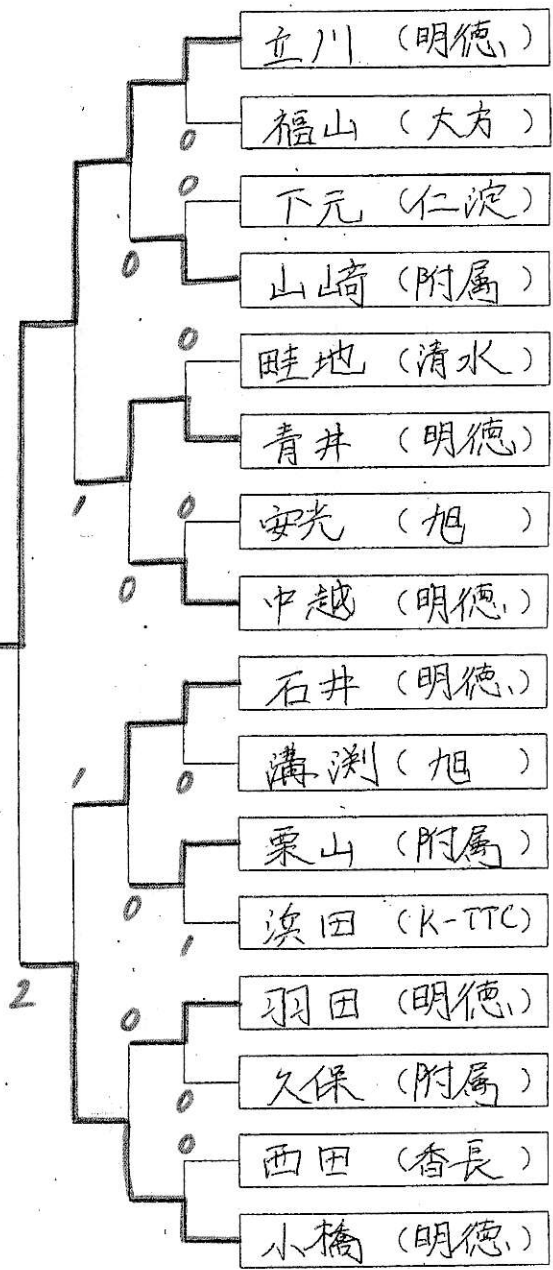 立川 (明徳)
0
福山 (大方)
0
下元 (仁淀)
0
山﨑 (附属)
0
畦地 (清水)
青井 (明徳)
1
0
安光 (旭)
0
中越 (明徳)
石井 (明徳)
1
0
溝渕 (旭)
栗山 (附属)
0
1
浜田 (K-TTC)
2
0
羽田 (明徳)
0
久保 (附属)
0
西田 (香長)
小橋 (明徳)